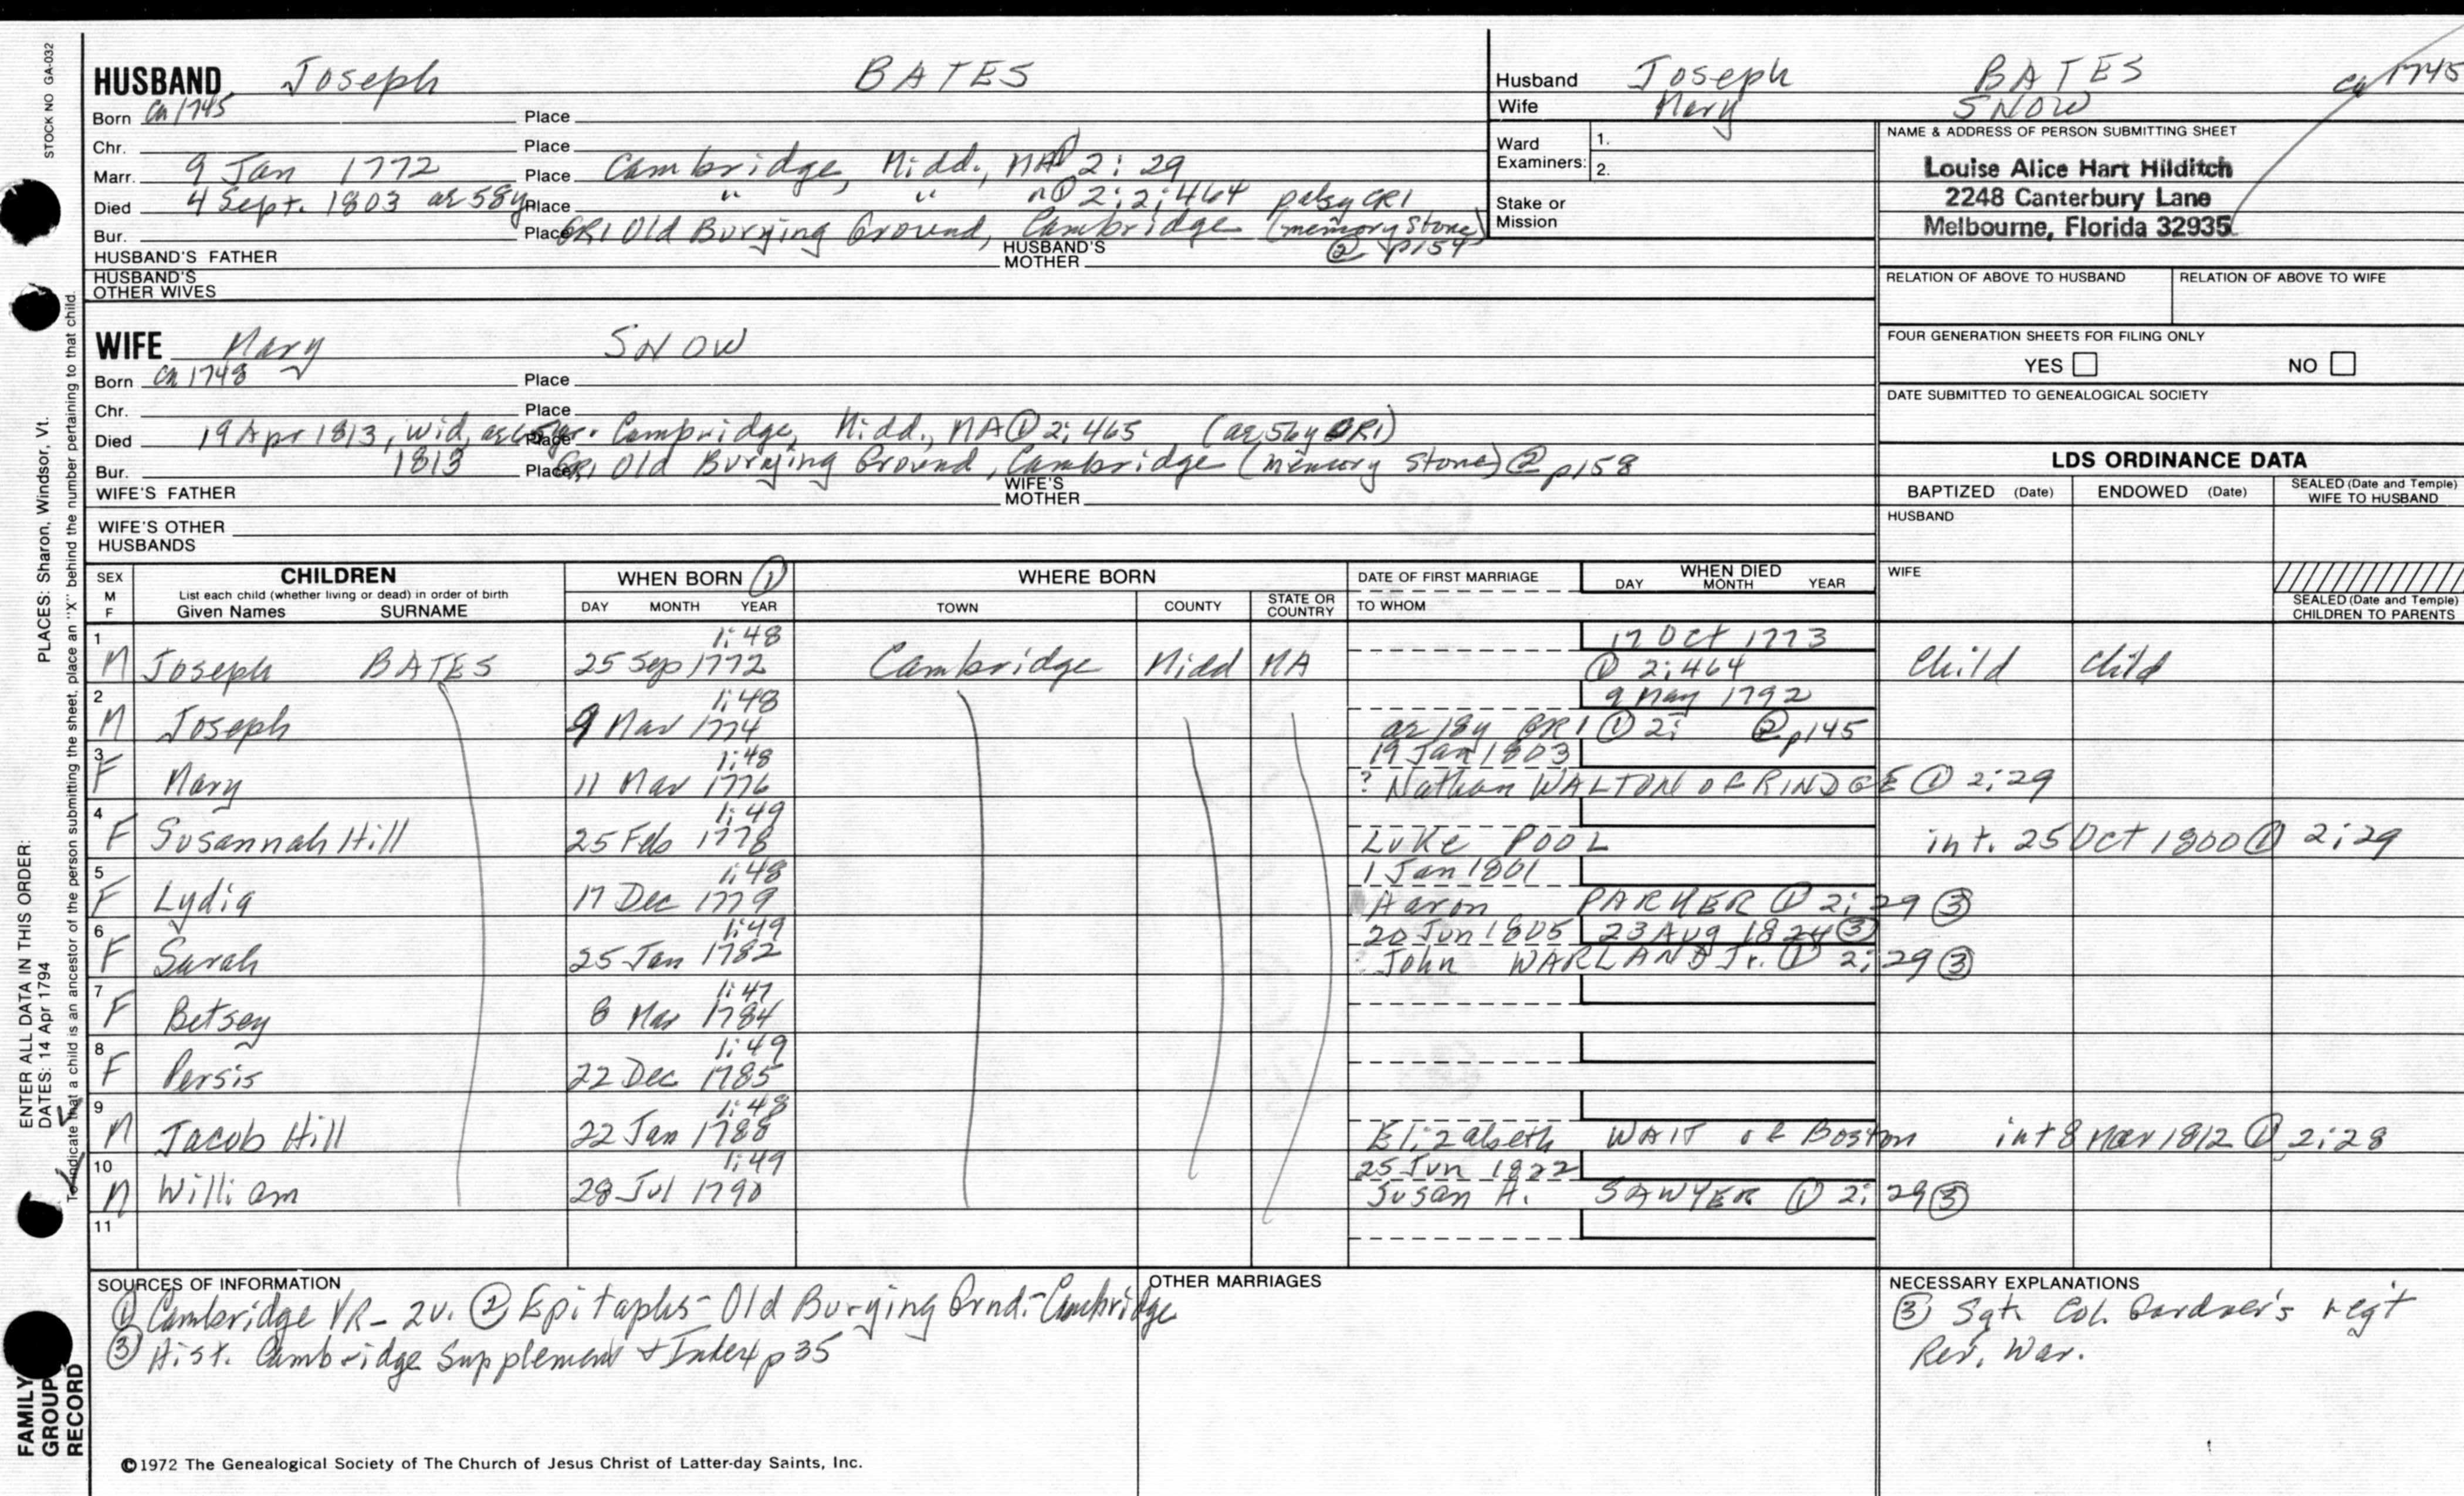 STOCK NO GA-032
HUSBAND Joseph BATES
Born Ca 1745 Place
Chr. Place
Marr. 9 Jan 1772 Place Cambridge, Midd., MA ① 2:29
Died 4 Sept. 1803 ae 58y Place " " ① 2:2:464 palsy CR1
Bur. Place GR1 Old Burying Ground, Cambridge (memory stone) ② p154
HUSBAND'S FATHER HUSBAND'S MOTHER
HUSBAND'S OTHER WIVES
Husband Joseph BATES ca 1745
Wife Mary SNOW
Ward Examiners: 1.
2.
Stake or Mission
NAME & ADDRESS OF PERSON SUBMITTING SHEET
Louise Alice Hart Hilditch
2248 Canterbury Lane
Melbourne, Florida 32935
RELATION OF ABOVE TO HUSBAND RELATION OF ABOVE TO WIFE
FOUR GENERATION SHEETS FOR FILING ONLY
YES NO
DATE SUBMITTED TO GENEALOGICAL SOCIETY
WIFE Mary SNOW
Born Ca 1748 Place
Chr. Place
Died 19 Apr 1813, wid, Place Cambridge, Midd., MA ① 2:465 (ae 56y GR1)
Bur. 1813 Place GR1 Old Burying Ground, Cambridge (memory stone) ② p158
WIFE'S FATHER WIFE'S MOTHER
WIFE'S OTHER HUSBANDS
LDS ORDINANCE DATA
BAPTIZED (Date) ENDOWED (Date) SEALED (Date and Temple) WIFE TO HUSBAND
HUSBAND
WIFE
SEALED (Date and Temple) CHILDREN TO PARENTS
SEX M F CHILDREN List each child (whether living or dead) in order of birth Given Names SURNAME
WHEN BORN ① DAY MONTH YEAR
WHERE BORN TOWN COUNTY STATE OR COUNTRY
DATE OF FIRST MARRIAGE TO WHOM
WHEN DIED DAY MONTH YEAR
1 1:48 17 Oct 1773
M Joseph BATES 25 Sep 1772 Cambridge Midd MA ① 2:464 Child Child
2 1:48 9 May 1792
M Joseph 9 Mar 1774 ae 18y GR1 ① 2: ② p145
3 1:48 19 Jan 1803
F Mary 11 Mar 1776 ? Nathan WALTON of RINDGE ① 2:29
4 1:49
F Susannah Hill 25 Feb 1778 Luke POOL int. 25 Oct 1800 ① 2:29
5 1:48 1 Jan 1801
F Lydia 17 Dec 1779 Aaron PARKER ① 2:29 ③
6 1:49 20 Jun 1805 23 Aug 1824 ③
F Sarah 25 Jan 1782 John WARLAND Jr. ① 2:29 ③
7 1:47
F Betsey 8 Mar 1784
8 1:49
F Persis 22 Dec 1785
9 1:48
M Jacob Hill 22 Jan 1788 Elizabeth WAIT of Boston int 8 Mar 1812 ① 2:28
10 1:49 25 Jun 1822
M William 28 Jul 1790 Susan H. SAWYER ① 2:29 ③
11
SOURCES OF INFORMATION
① Cambridge VR - 2v. ② Epitaphs - Old Burying Grnd. - Cambridge
③ Hist. Cambridge Supplement + Index p 35
OTHER MARRIAGES
NECESSARY EXPLANATIONS
③ Sgt. Col. Gardner's regt
Rev. War.
©1972 The Genealogical Society of The Church of Jesus Christ of Latter-day Saints, Inc.
ENTER ALL DATA IN THIS ORDER:
DATES: 14 Apr 1794 PLACES: Sharon, Windsor, Vt.
To indicate that a child is an ancestor of the person submitting the sheet, place an "X" behind the number pertaining to that child.
FAMILY GROUP RECORD